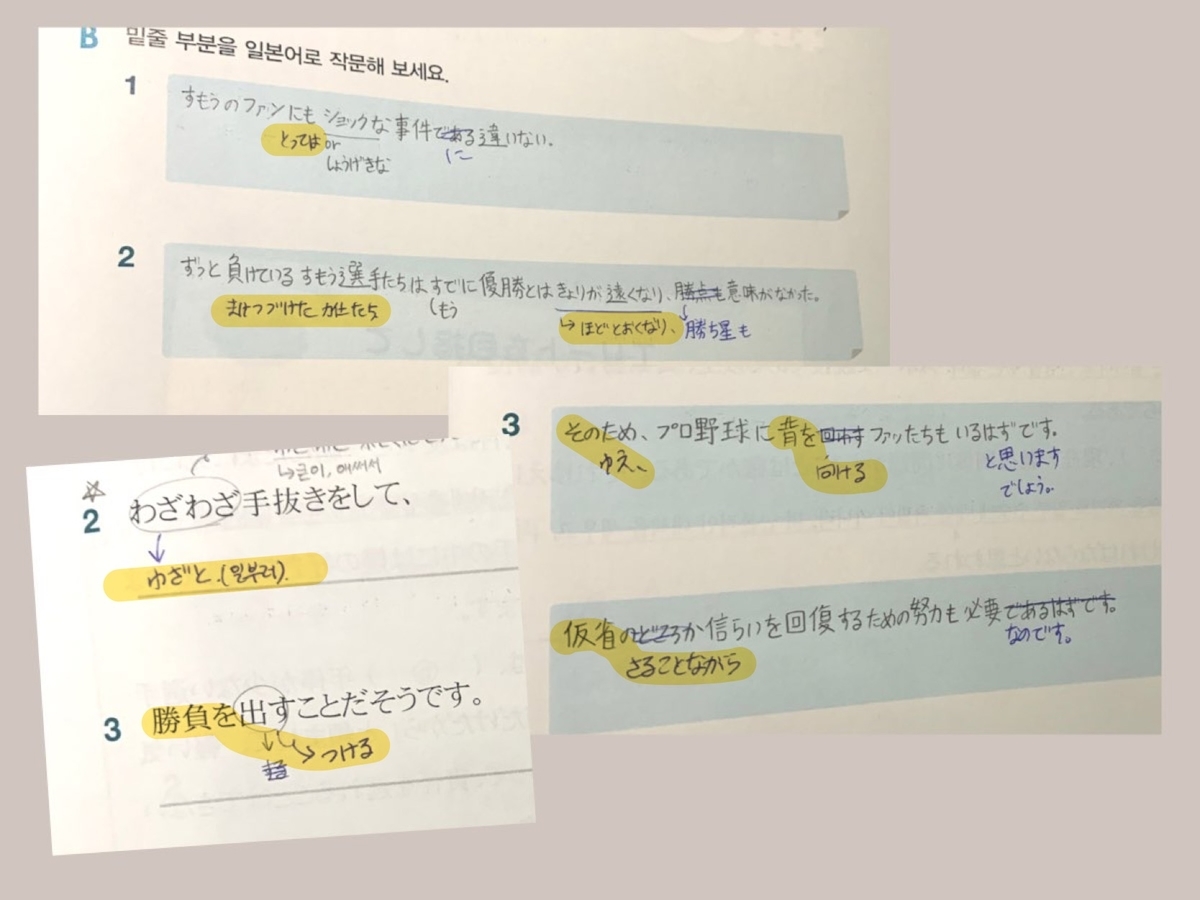 B 밑줄 부분을 일본어로 작문해 보세요.
1
すもうのファンにも ショックな事件である違いない。
とっては or に
しょうげきな
2
ずっと負けているすもう選手たちはすでに優勝とはきょりが遠くなり、勝点も意味がなかった。
まけつづけた 力士たち (もう ↳ほどとおくなり、勝ち星も
3
そのため、プロ野球に背を回わすファンたちもいるはずです。
ゆえ、 向ける と思います
でしょう。
仮省のどころか信らいを回復するための努力も必要であるはずです。
さることながら なのです。
↳굳이, 애써서
☆
2 わざわざ手抜きをして、
わざと.(일부러).
3 勝負を出すことだそうです。
つける